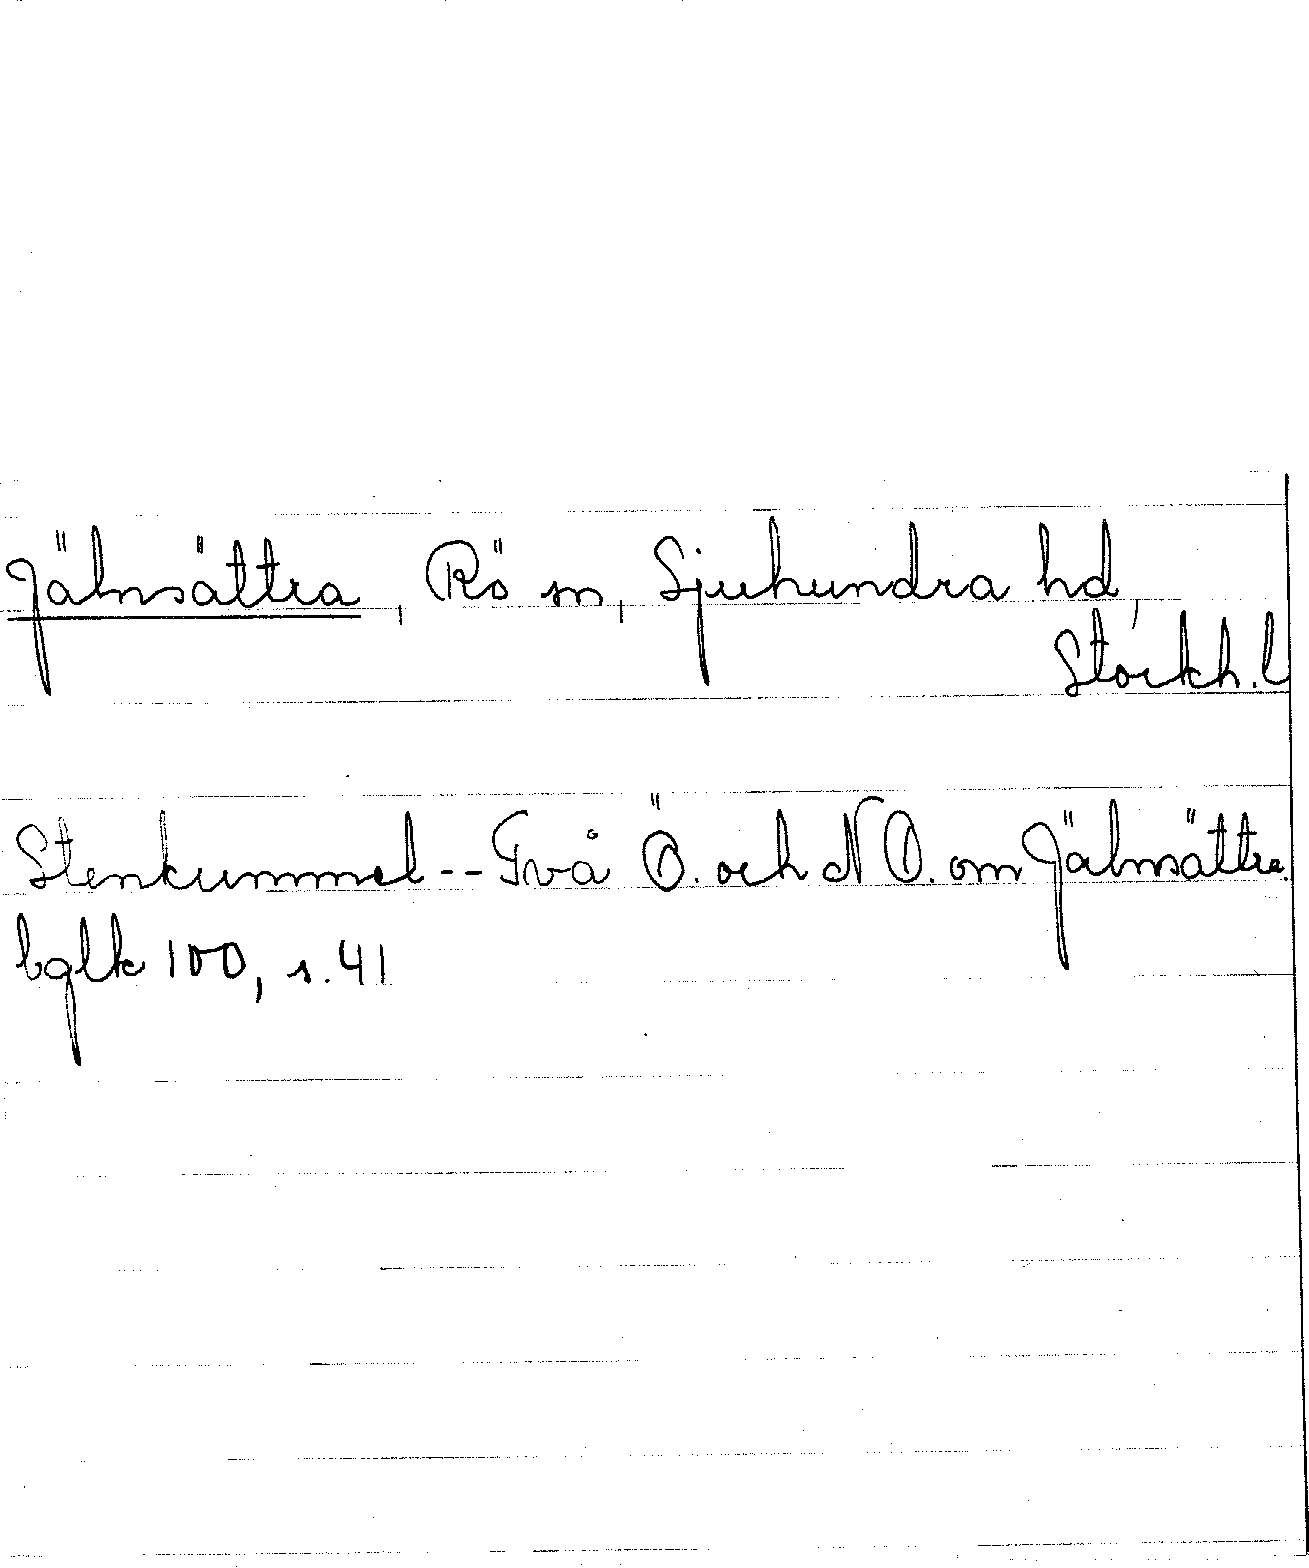 Jälnsättra, Rö sn, Sjuhundra hd,
Stockh. l
Stenkummel -- Två Ö. och N O. om Jälnsättra.
bglk 100, s. 41